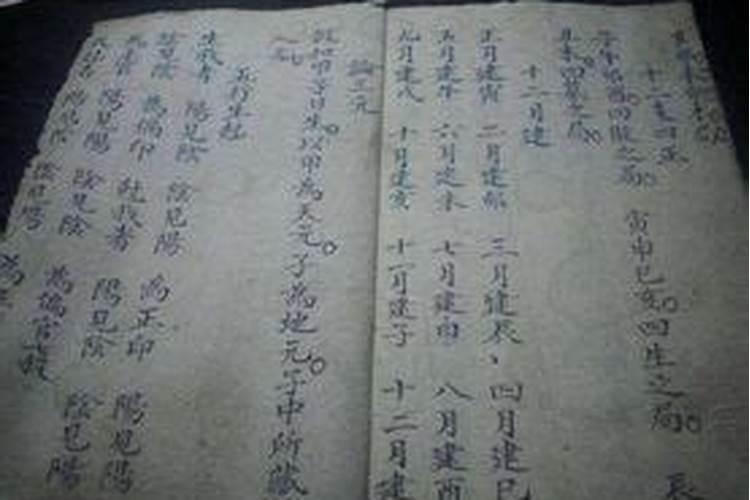 十二支四正
子午卯酉四敗之局 寅申巳亥四生之局 辰
丑未四墓之局
十二月建
正月建寅 二月建卯 三月建辰、四月建巳
五月建午 六月建未 七月建申 八月建酉
九月建戌 十月建亥 十一月建子 十二月建
論三元
假如甲子日生以甲為天元子為地元子中所藏
五行生尅
生我者 陽見陰 陰見陽 為正印 陽見陽
陰見陰 為偏印 尅我者 陽見陰 陰見陽
為正官 陽見陽 陰見陰 為偏官
陽見陰 陰見陽 為正